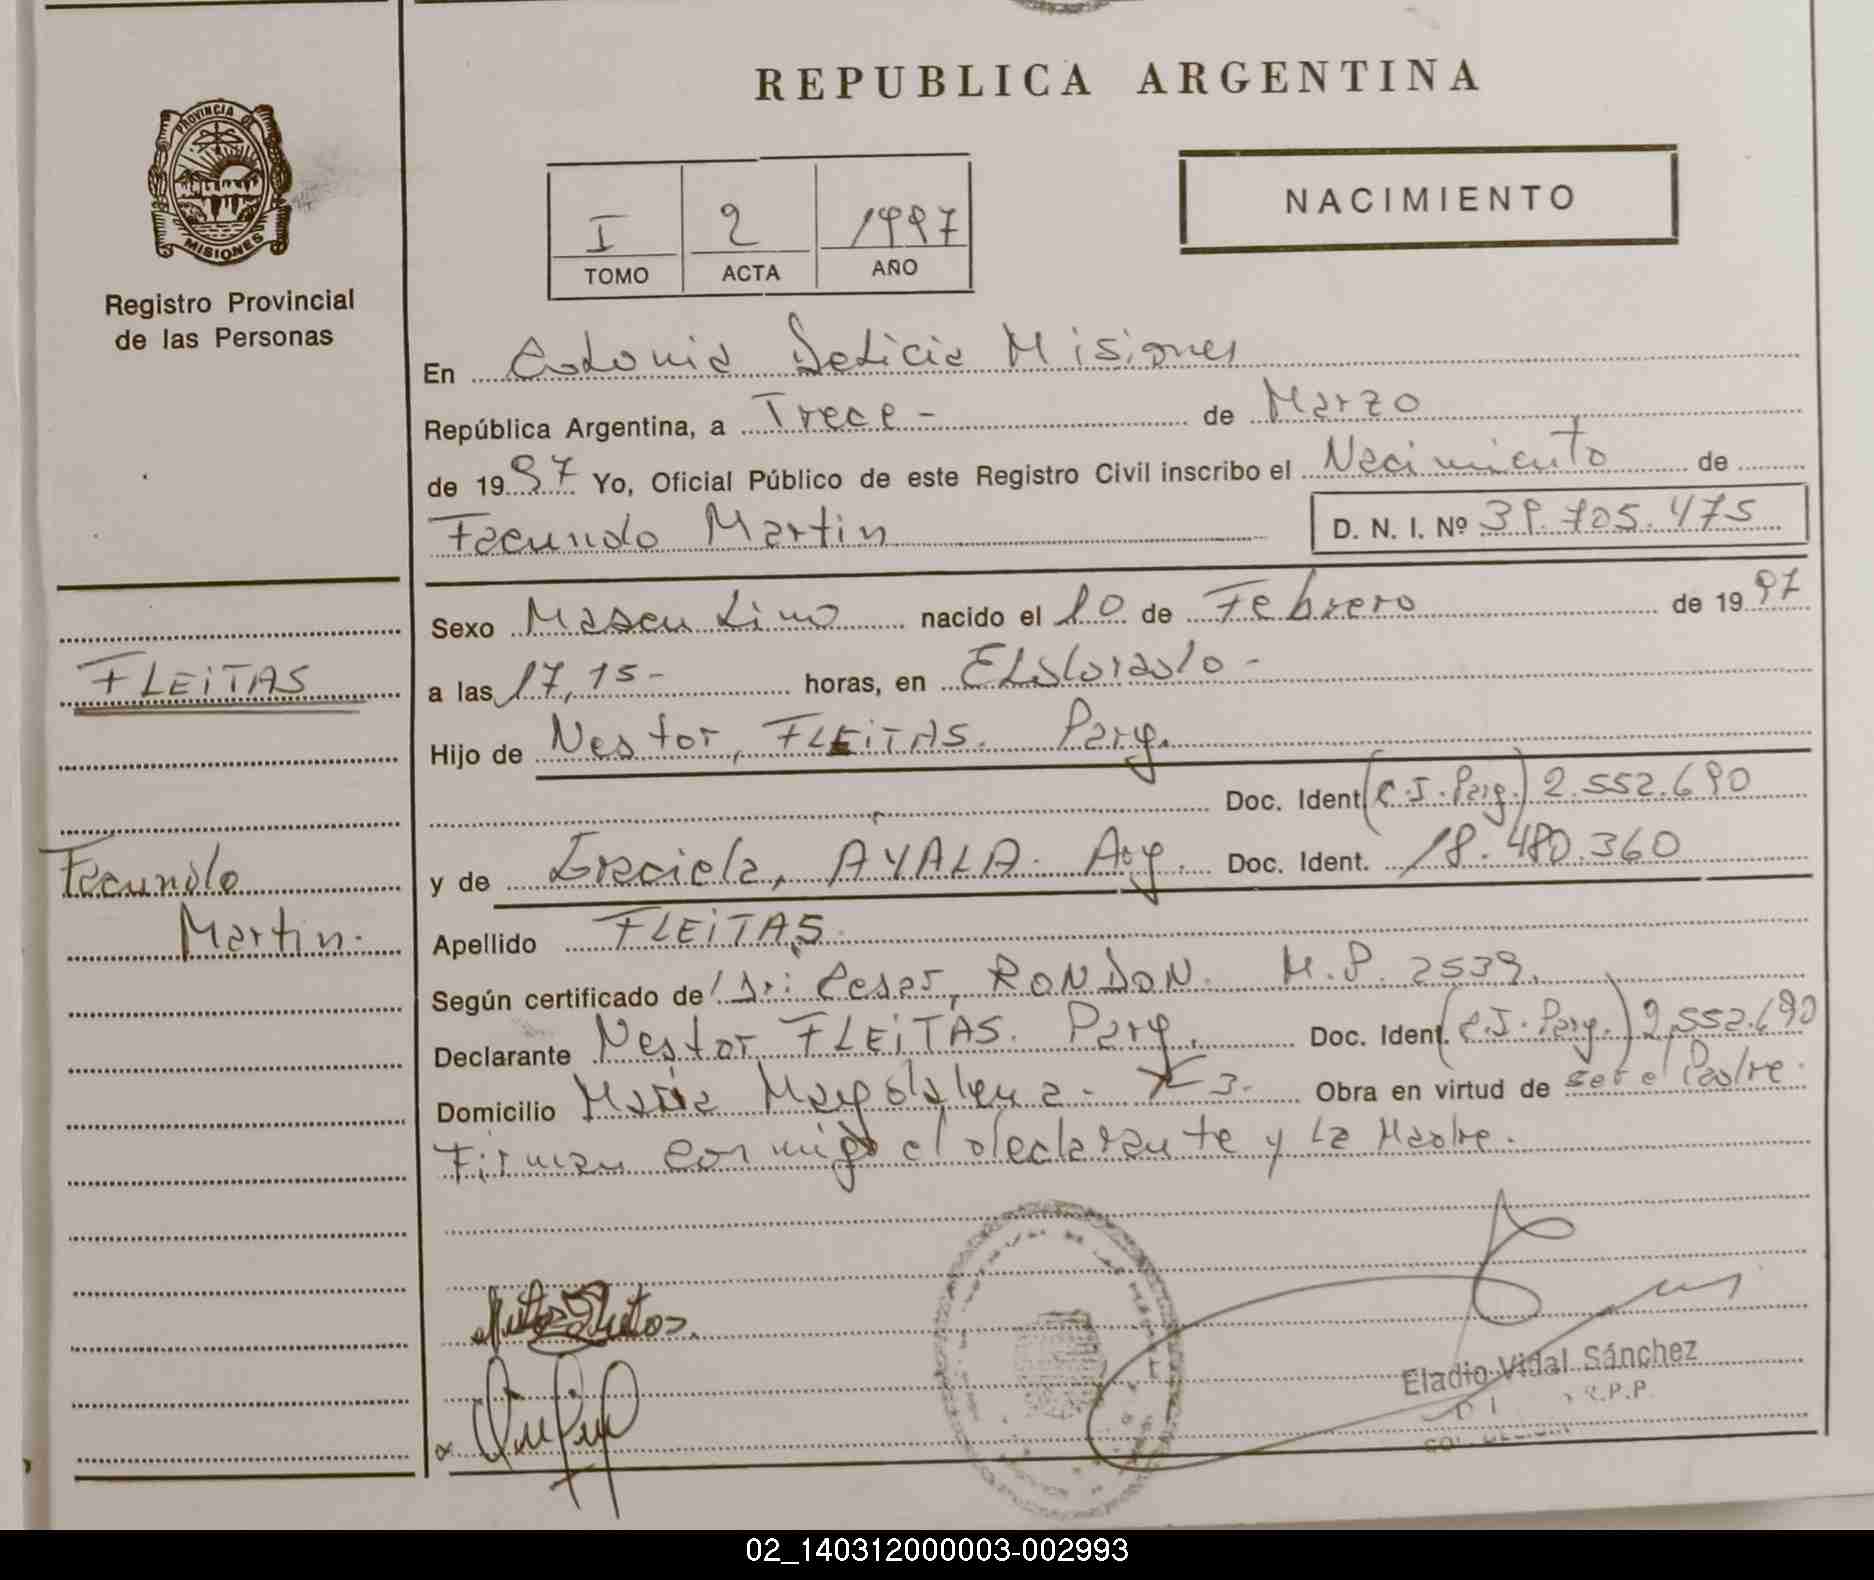 REPUBLICA ARGENTINA
PROVINCIA DE
MISIONES
Registro Provincial
de las Personas
I 2 1997
TOMO ACTA AÑO
NACIMIENTO
En Colonia Delicia Misiones
República Argentina, a Trece - de Marzo
de 1997 Yo, Oficial Público de este Registro Civil inscribo el Nacimiento de
Facundo Martin D. N. I. Nº 39.705.475
Sexo Masculino nacido el 10 de Febrero de 1997
FLEiTAS
a las 17,15- horas, en ELdorado -
Hijo de Nestor, FLEiTAS. Parg.
Doc. Ident. (C.I. Parg.) 2.552.690
Facundo
Martin.
y de Graciela, AYALA. Arg. Doc. Ident. 18.480.360
Apellido FLEiTAS.
Según certificado de Dr: Cesar, RONDON. M.P. 2539.
Declarante Nestor FLEiTAS. Parg. Doc. Ident. (C.I. Parg.) 2,552.690
Domicilio Maria Magdalena - K 3. Obra en virtud de ser el Padre.
Firman conmigo el declarante y La Madre.
Eladio Vidal Sánchez
R.P.P.
02_140312000003-002993